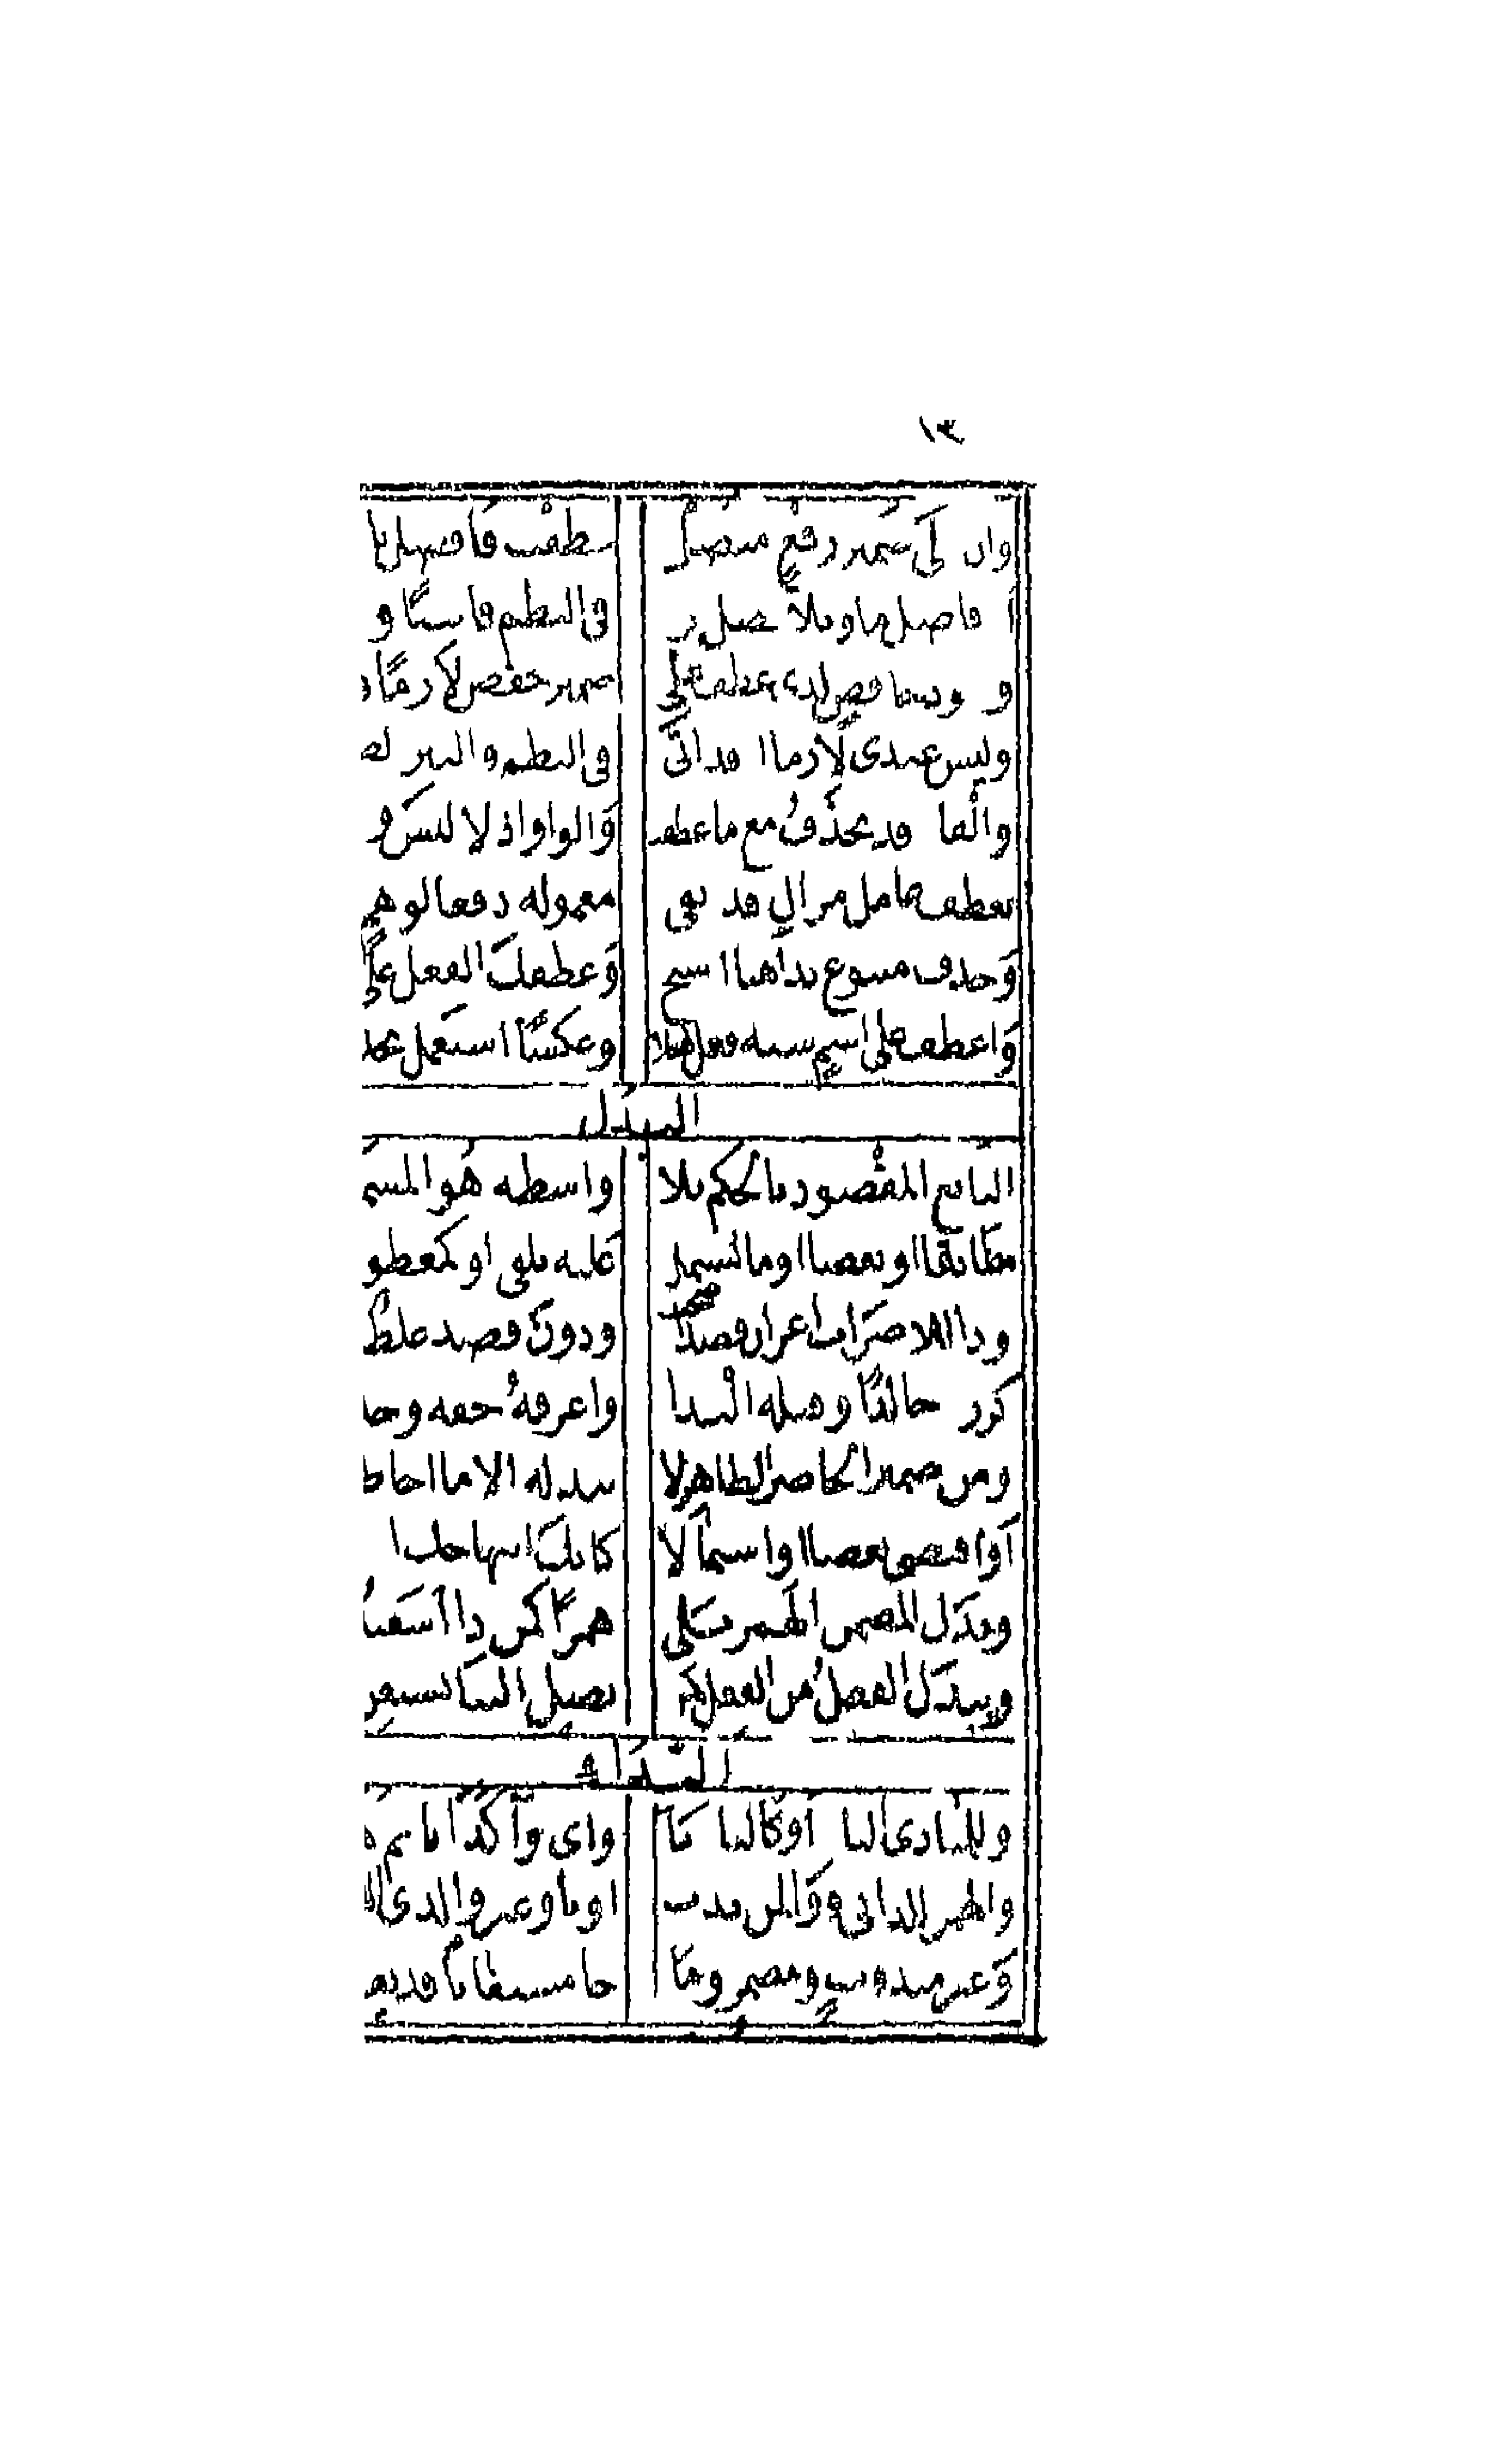 ١٣
وان على ضمير رفع متصل عطفت فافصل با
او فاصل ما وبلا فصل يرد في النظم فاشيا و
وعود خافض لدى عطف على ضمير خفض لازما
وليس عندى لازما اذ قد اتى في النظم والنثر الص
والفا قد تحذف مع ما عطفت والواو اذ لا لبس و
بعطف عامل مزال قد بقى معموله دفعا لوهم
وحذف متبوع بدا هنا استبح وعطفك الفعل على
واعطف على اسم شبه فعل فعلا وعكسا استعمل تجد
البدل
التابع المقصود بالحكم بلا واسطة هو المسم
مطابقا او بعضا او ما يشتمل عليه يلفى او كمعطو
وذا للاضراب اعز ان قصدا صحب ودون قصد غلط
كزره خالدا وقبله اليدا واعرفه حقه وخذ
ومن ضمير الحاضر الظاهر لا تبدله الا ما احاط
او اقتضى بعضا او اشتمالا كانك ابتهاجك ا
وبدل المضمن الهمز يلى همزا كمن ذا اسعيد
ويبدل الفعل من الفعل كمن يصل الينا يستعن
النداء
وللمنادى الناء او كالناء يا واى وآ كذا ايا ثم ه
والهمز للدانى ووا لمن ندب او يا وغير وا لدى ال
وغير مندوب ومضمر وما جا مستغاثا قد يع